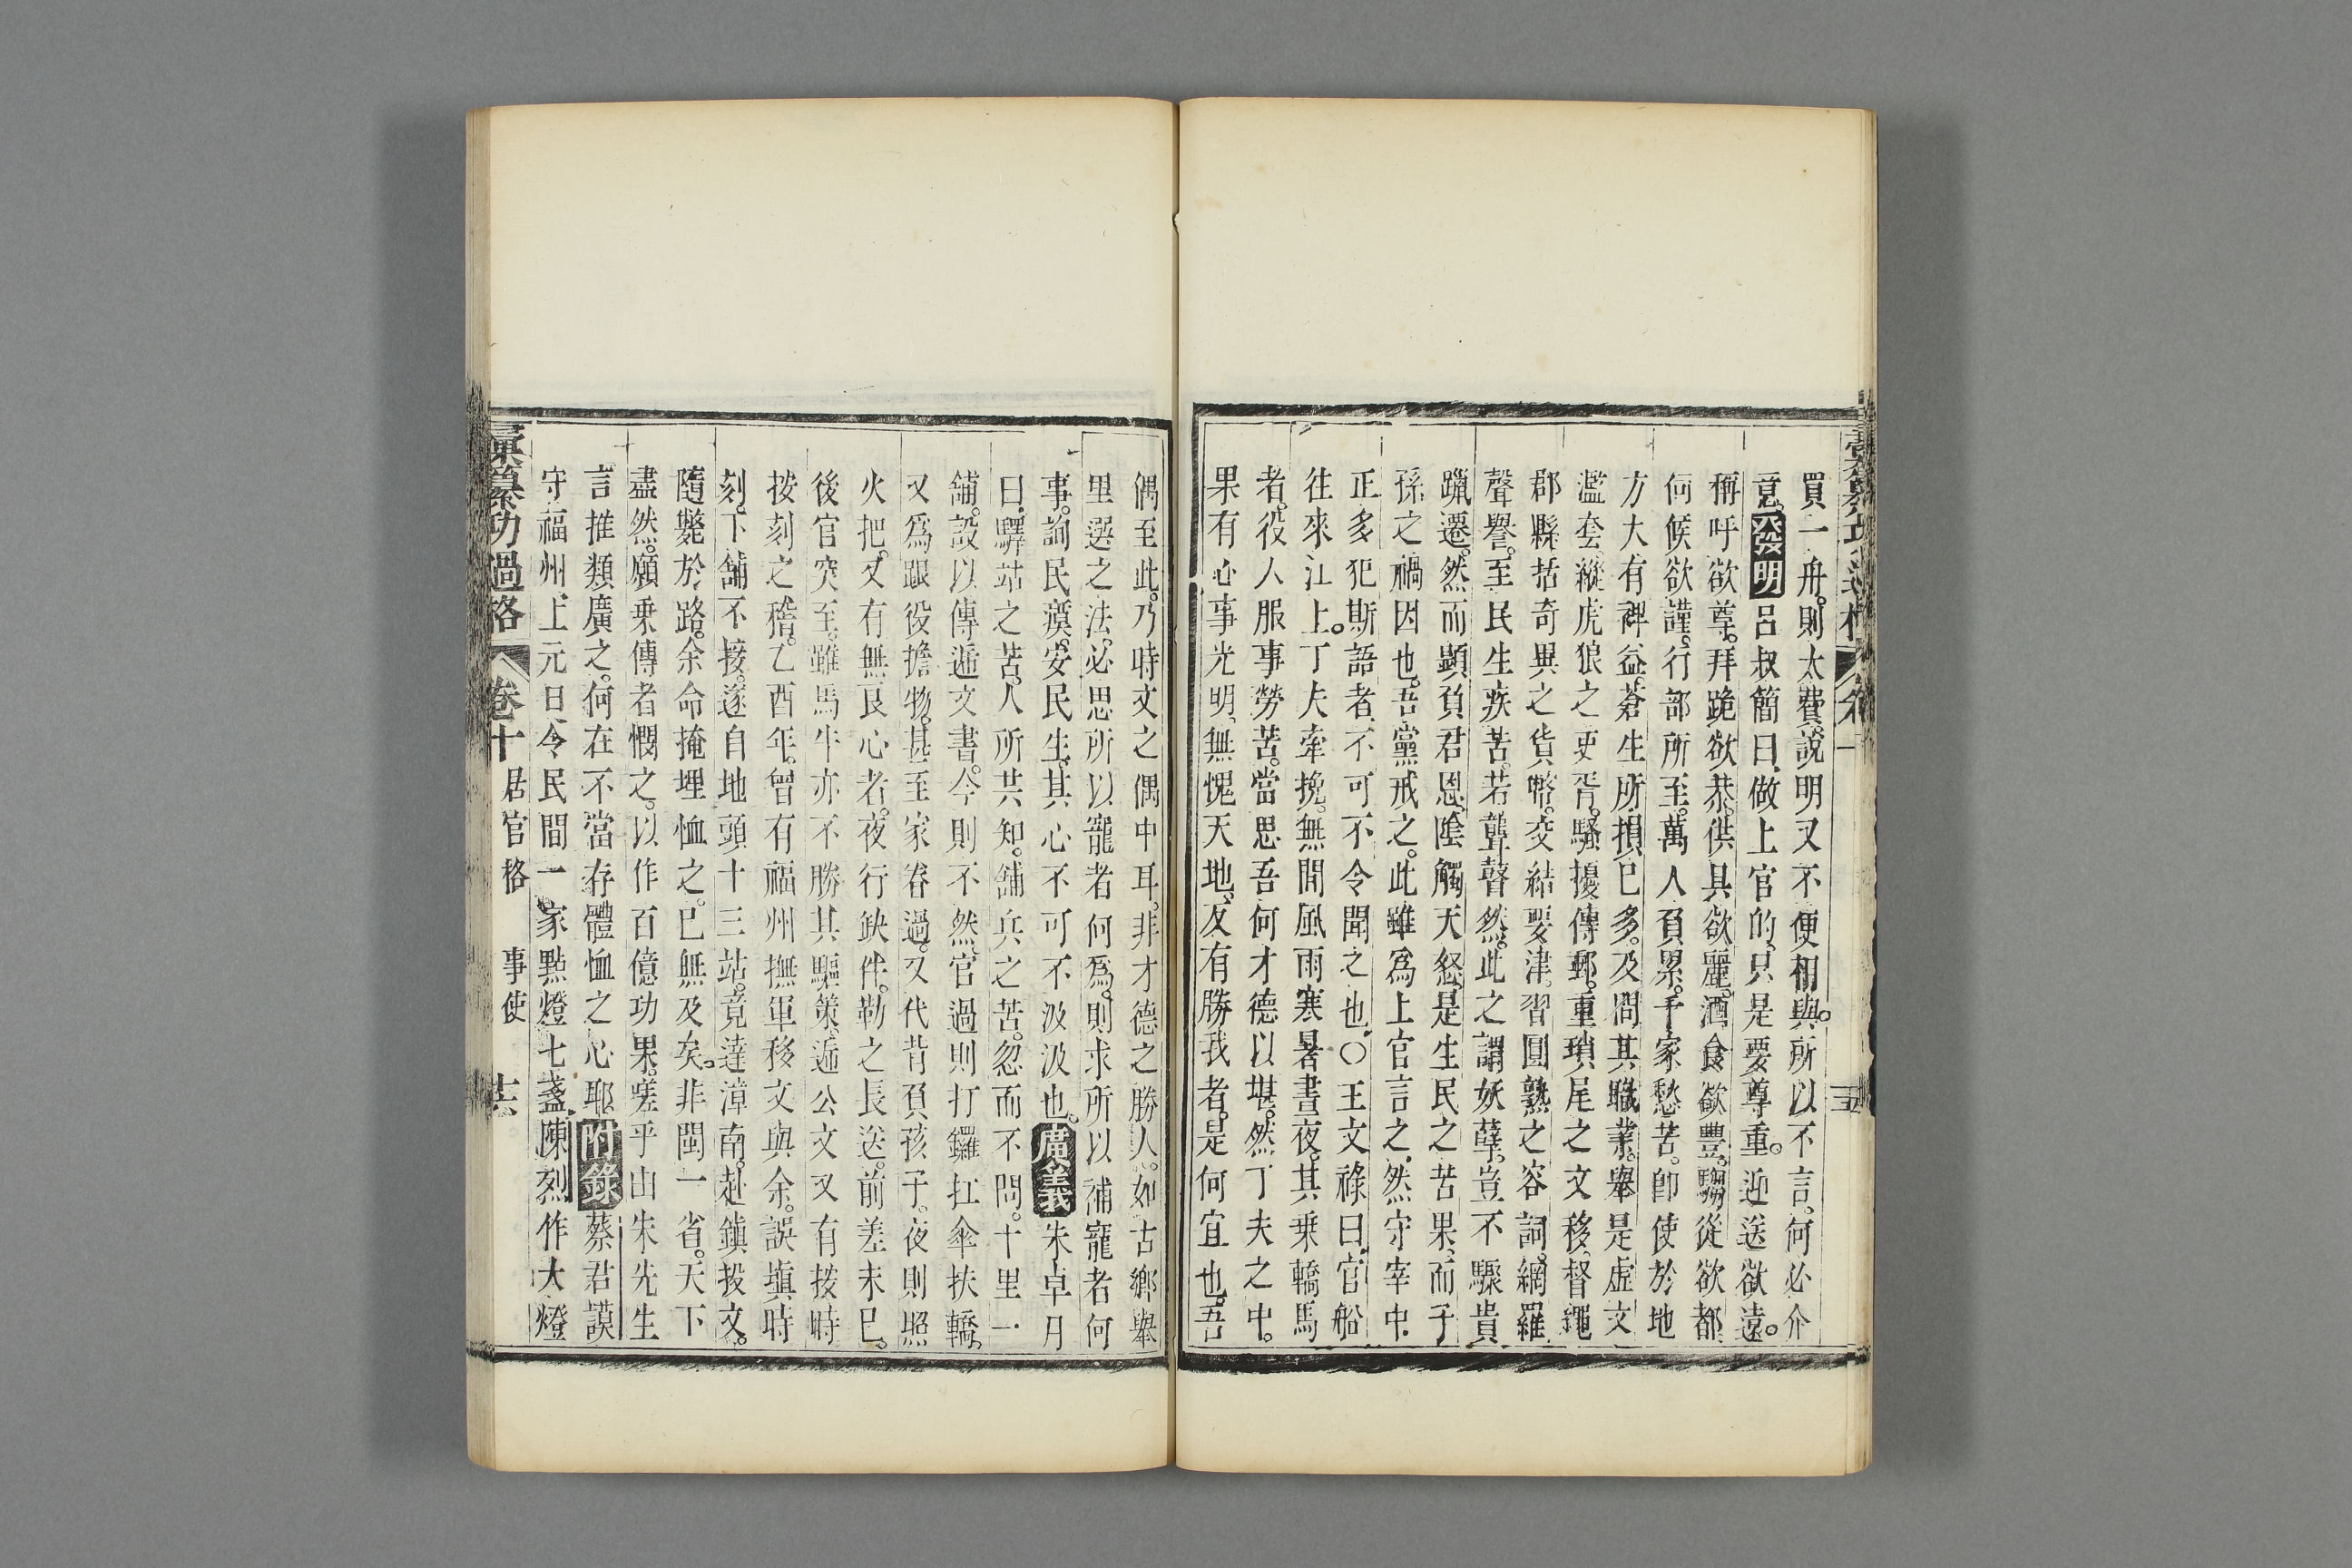 買一舟。則太費。說明又不便相與。所以不言。何必介
意。發明呂叔簡曰。做上官的。只是要尊重。迎送欲遠。
稱呼欲尊。拜跪欲恭。供具欲麗。酒食欲豐。騶從欲都
伺候欲謹。行部所至。萬人負累。千家愁苦。卽使於地
方大有裨益。蒼生所損已多。及問其職業。舉是虛文
濫套。縱虎狼之吏胥。騷擾傳郵。重瑣尾之文移。督繩
郡縣。括奇異之貨幣。交結要津。習圓熟之容詞。網羅
聲譽。至民生疾苦。若聾瞽然。此之謂妖孽。豈不驟貴
躐遷。然而顯負君恩。陰觸天怒。是生民之苦果。而子
孫之禍因也。吾黨戒之。此雖爲上官言之。然守宰中
正多犯斯語者。不可不令聞之也。○王文祿曰。官船
往來江上。丁夫牽挽。無間風雨寒暑晝夜。其乗轎馬
者。役人服事勞苦。當思吾何才德以堪。然丁夫之中。
果有心事光明。無愧天地。反有勝我者。是何宜也。吾
偶至此。乃時文之偶中耳。非才德之勝人。如古鄉舉
里選之法。必思所以寵者何爲。則求所以補寵者何
事。詢民瘼。安民生。其心不可不汲汲也。廣義朱卓月
曰。驛站之苦。人所共知。舖兵之苦。忽而不問。十里一
舖。設以傳遞文書。今則不然。官過則打鑼扛傘扶轎。
又爲跟役擔物。甚至家眷過。又代背負孩子。夜則照
火把。又有無良心者。夜行缺件。勒之長送。前差未已。
後官突至。雖馬牛亦不勝其驅策。遞公文又有按時
按刻之稽。乙酉年。曾有福州撫軍移文與余。誤塡時
刻。下舖不接。遂自地頭十三站。竟達漳南。赴鎮投文。
隨斃於路。余命掩埋恤之。已無及矣。非閩一省。天下
盡然。願乗傳者憫之。以作百億功果。嗟乎山朱先生
言推類廣之。何在不當存體恤之心耶。附錄蔡君謨
守福州。上元日。令民間一家點燈七盞。陳烈作大燈
彙纂功過格 卷十 居官格 事使 十六